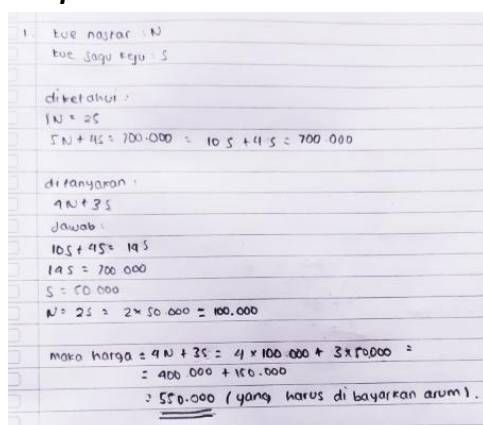 1. kue nastar : N
kue sagu keju : S
diketahui :
1N = 2S
5N + 4S = 700.000 = 10 S + 4 S = 700.000
ditanyakan :
4N + 3S
Jawab :
10S + 4S = 14 S
14 S = 700 000
S = 50 000
N = 2S = 2 x 50.000 = 100.000
maka harga = 4N + 3S = 4 x 100.000 + 3 x 50.000 =
= 400.000 + 150.000
= 550.000 (yang harus di bayarkan arum).